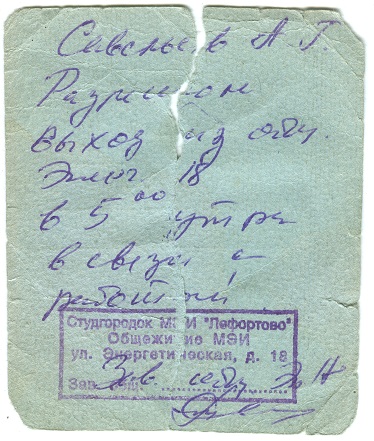 Савельев А Г.
Разрешен
выход из общ.
Энерг 18
в 5 00 утра
в связи с
работой
Студгородок МЭИ "Лефортово"
Общежитие МЭИ
ул. Энергетическая, д. 18
Зав. общ.